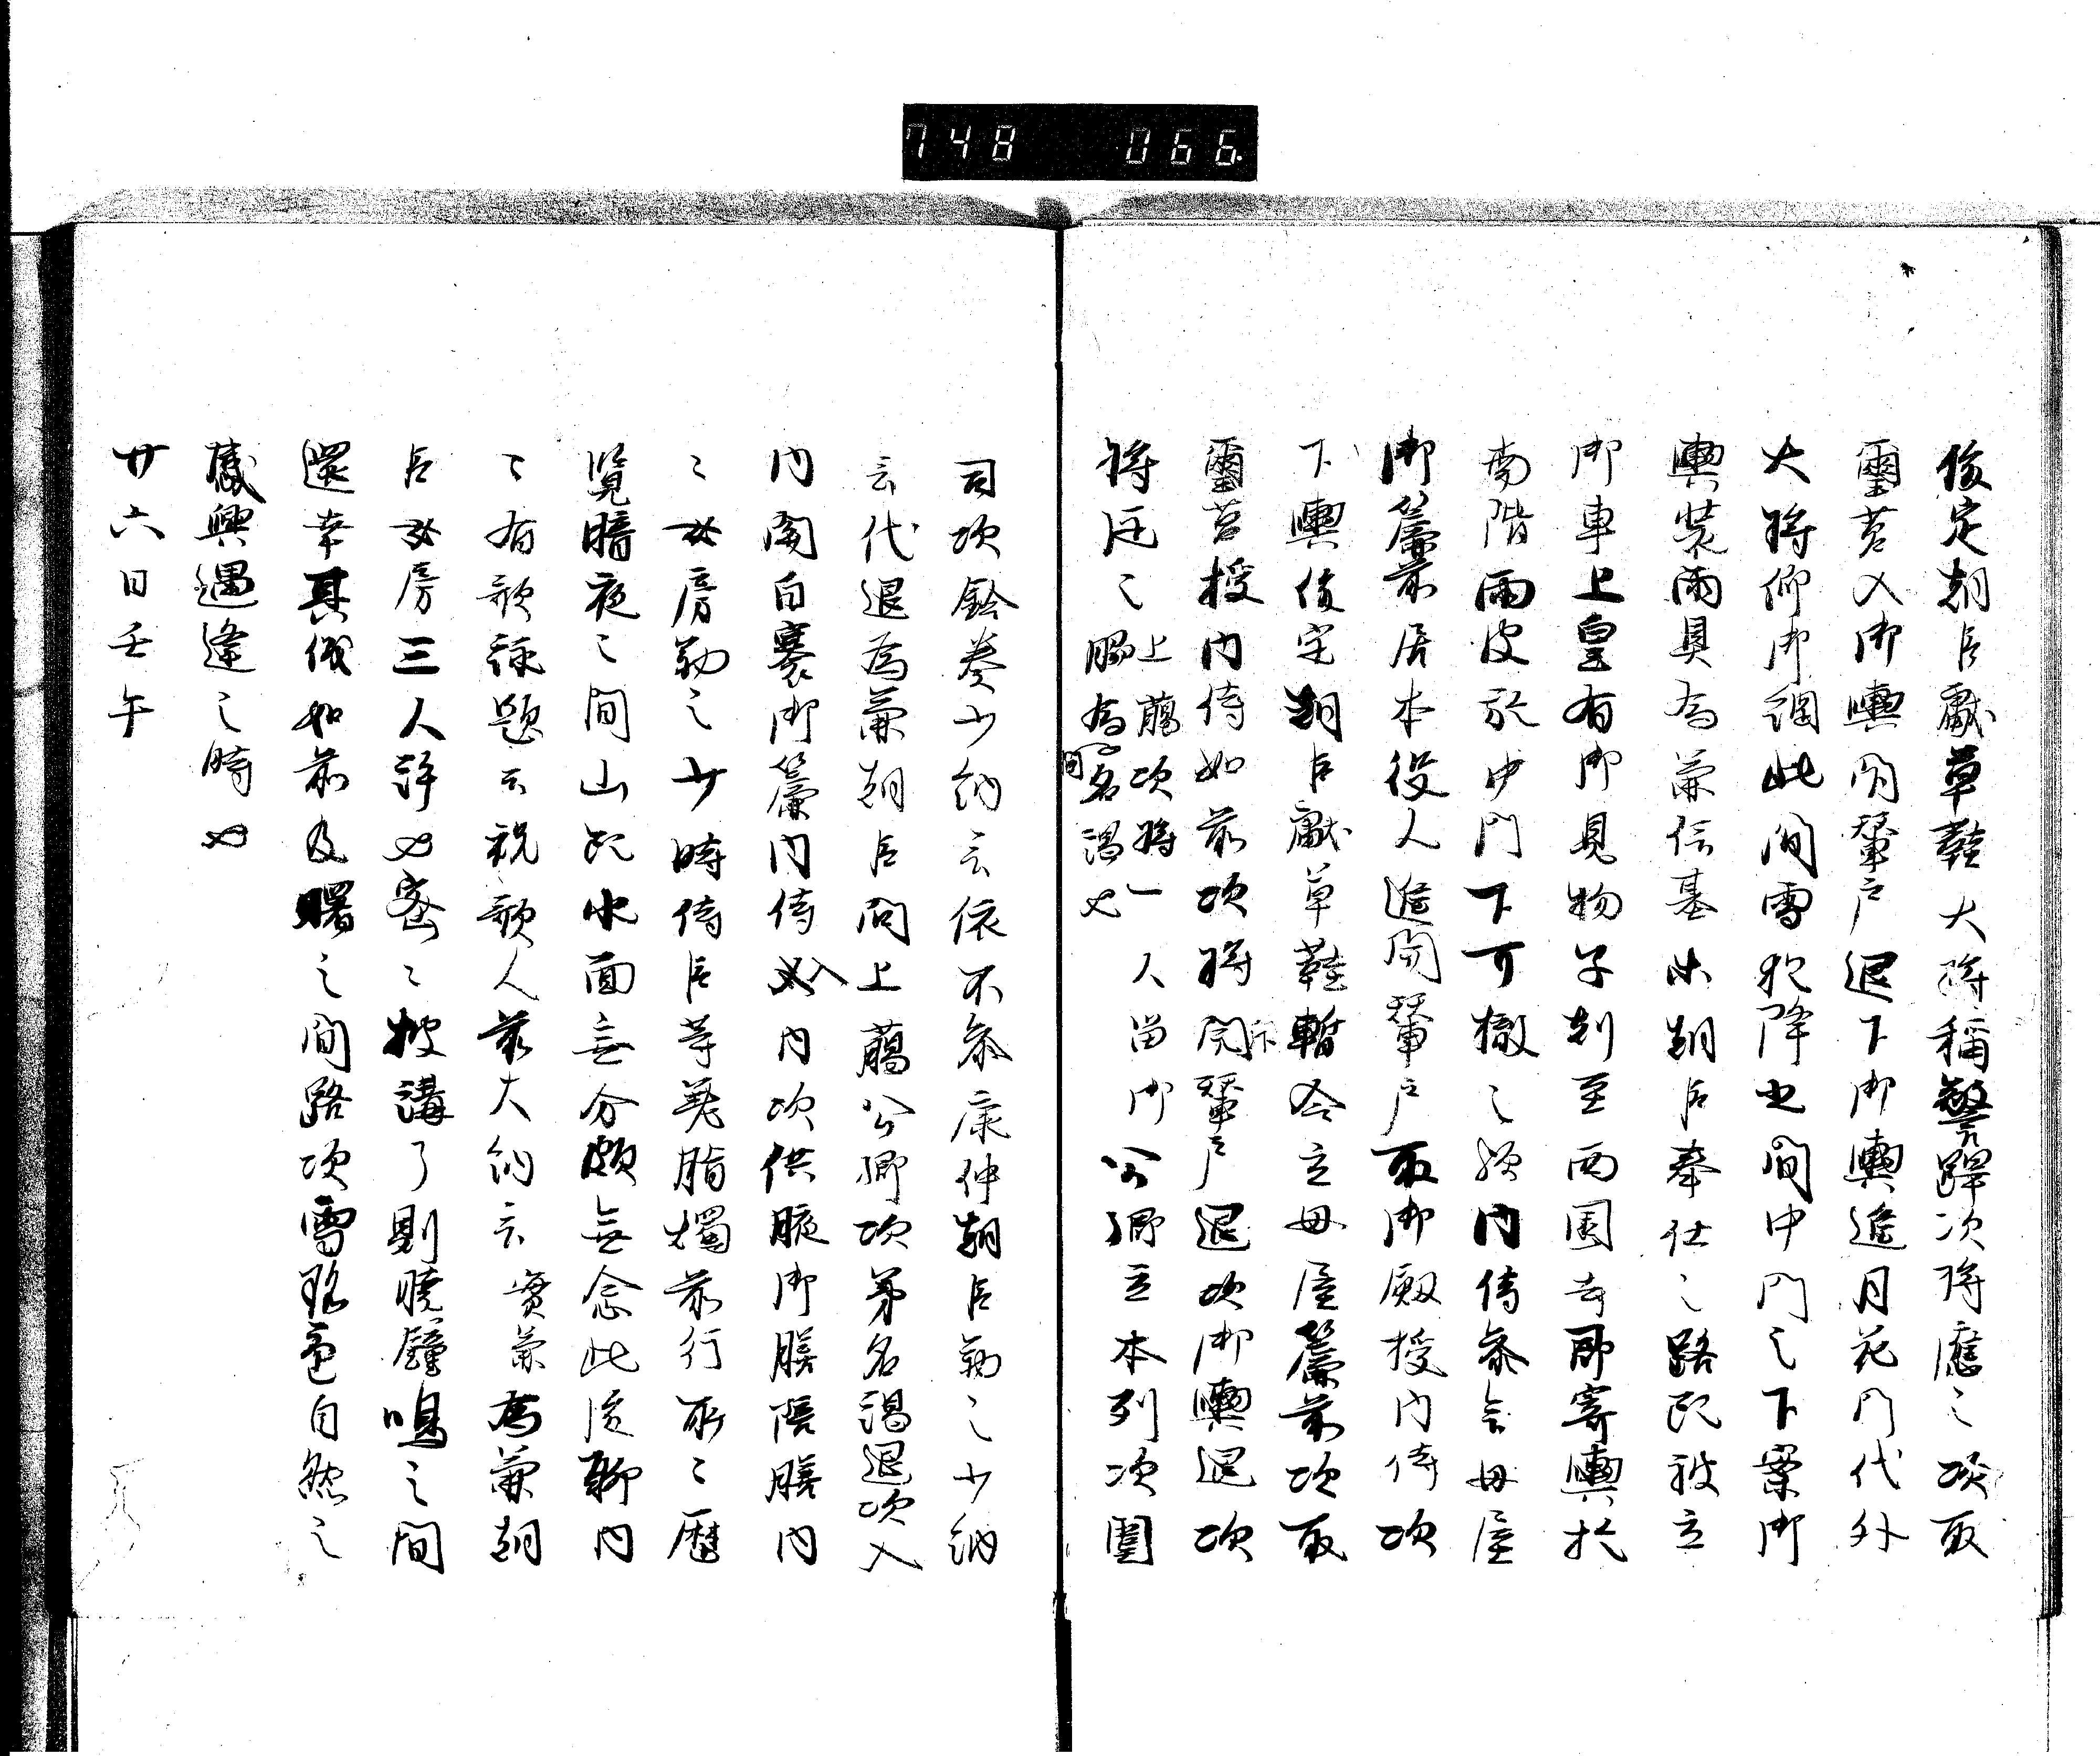 748 066
俊定朝臣献草鞋大将称警蹕次将應之次取
璽筥入御輿閇輦戸退下御輿進月花門代外
大将仰御綱此間雪状降也間中門之下案御
輿装雨具為兼信基等朝臣奉仕之路次被立
御車上皇有御見物子刻至西園寺即寄輿於
南階雨皮於中門下可撤之縿内侍参会母屋
御簾前居本役人進開輦戸取御殿授内侍次
下輿俊定朝臣献草鞋暫令立母屋簾前次取
璽筥授内侍如前次将閇輦戸退次御輿退次
将迋之上臈次将一人留御公卿立本列次闈
臈為問名謁也
司次鈴奏少納言依不参康仲朝臣勤之少納
言代退為兼朝臣問上臈公卿次第名謁退次入
内関白褰御簾内侍入内次供腋御膳陪膳内
之女房勤之少時侍臣等発脂燭前行所々歴
覧暗夜之間山形水面無分頗無念此後聊内
々有歌詠題云祝歌人兼大納言実兼為兼朝
臣女房三人許也密々披講了則暁鐘鳴之間
還幸其儀如前及曙之間路次雪猶色自然之
感興遇逢之時也
廿六日壬午